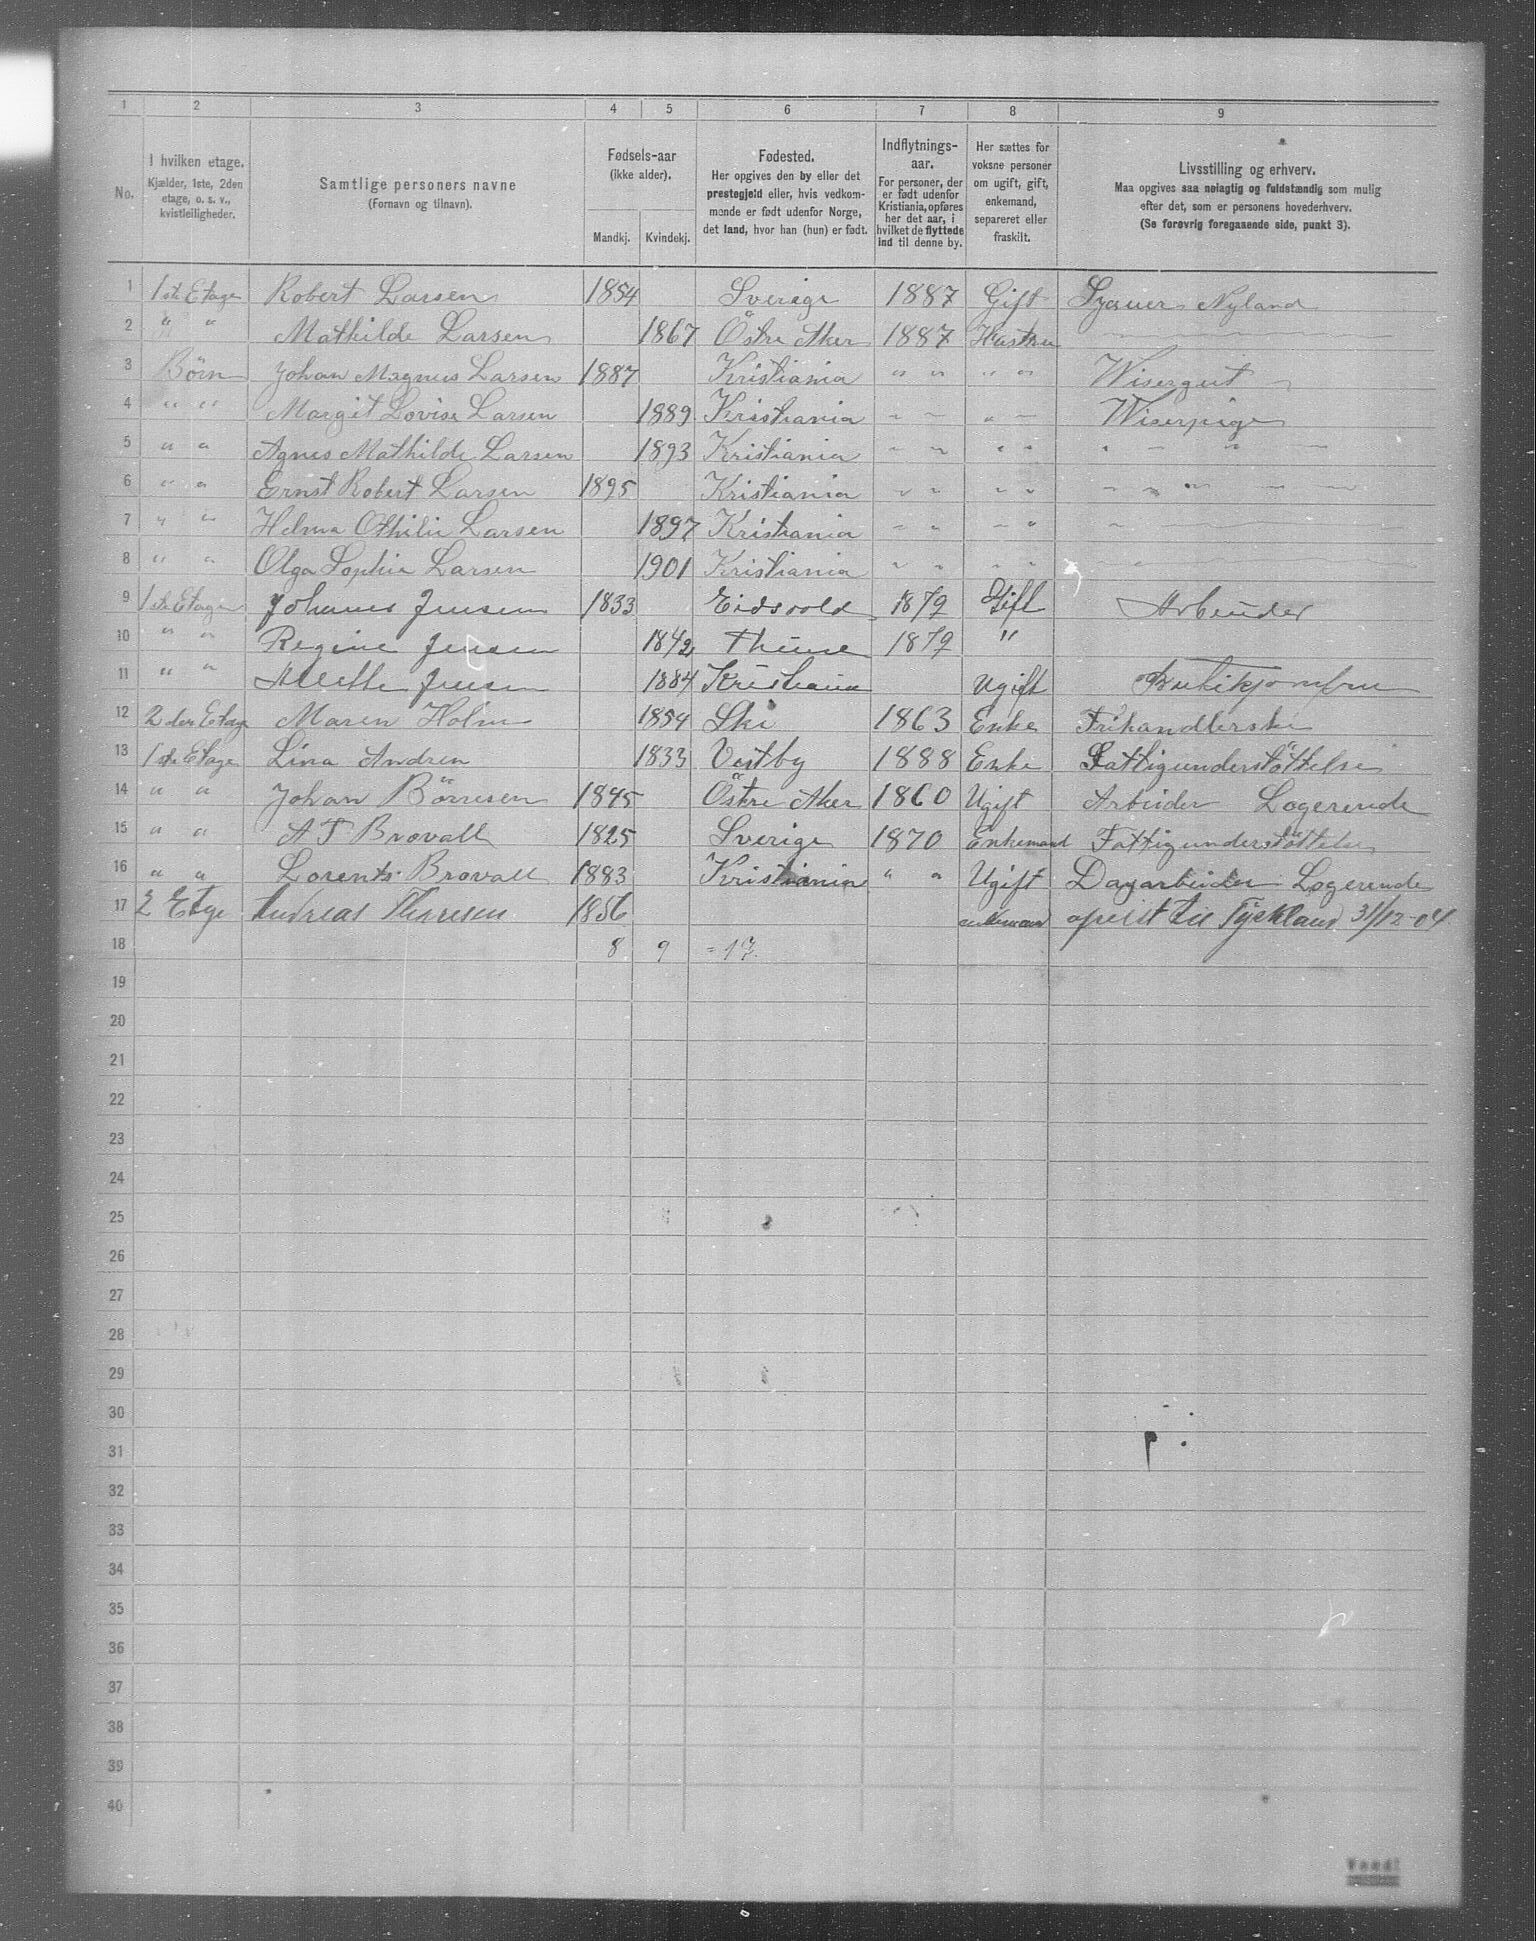 1 2 3 4 5 6 7 8 9
No. I hvilken etage. Kjælder, 1ste, 2den etage, o. s. v., kvistleiligheder.
Samtlige personers navne (Fornavn og tilnavn).
Fødsels-aar (ikke alder). Mandkj. Kvindekj.
Fødested. Her opgives den by eller det prestegjeld eller, hvis vedkommende er født udenfor Norge, det land, hvor han (hun) er født.
Indflytnings-aar. For personer, der er født udenfor Kristiania, opføres her det aar, i hvilket de flyttede ind til denne by.
Her sættes for voksne personer om ugift, gift, enkemand, separeret eller fraskilt.
Livsstilling og erhverv. Maa opgives saa nøiagtig og fuldstændig som mulig efter det, som er personens hovederhverv. (Se forøvrig foregaaende side, punkt 3).
1 1ste Etage Robert Larsen 1854 Sverige 1887 Gift Nyland
2 " " Mathilde Larsen 1867 Östre Aker 1887 Hustru
3 Börn Johan Magnus Larsen 1887 Kristiania " " " " Wisergut
4 " " Margit Lovise Larsen 1889 Kristiania " " " " Wiserpige
5 " " Agnes Mathilde Larsen 1893 Kristiania " " " "
6 " " Ernst Robert Larsen 1895 Kristiania " " " "
7 " " Helma Othilie Larsen 1897 Kristiania " " " "
8 " " Olga Sophie Larsen 1901 Kristiania " " " "
9 1ste Etage Johanes Jensen 1833 Eidsvold 1879 Gift Arbeider
10 " " Regine Jensen 1842 1879 "
11 " " Jensen 1884 Kristiania Ugift Butikjomfru
12 2den Etage Maren Holm 1854 Ski 1863 Enke Frihandlerske
13 1ste Etage Lina Andren 1833 Vestby 1888 Enke Fattigunderstöttelse
14 " " Johan Börresen 1845 Östre Aker 1860 Ugift Arbeider Logerende
15 " " A F Brovall 1825 Sverige 1870 Enkemand Fattigunderstöttelse
16 " " Lorents Brovall 1883 Kristiania " " Ugift Dagarbeider Logerende
17 2 Etage Andreas Thoresen 1856 enkemand til Tyskland 31/12-04
18 8 9 = 17.
19
20
21
22
23
24
25
26
27
28
29
30
31
32
33
34
35
36
37
38
39
40
Vend!